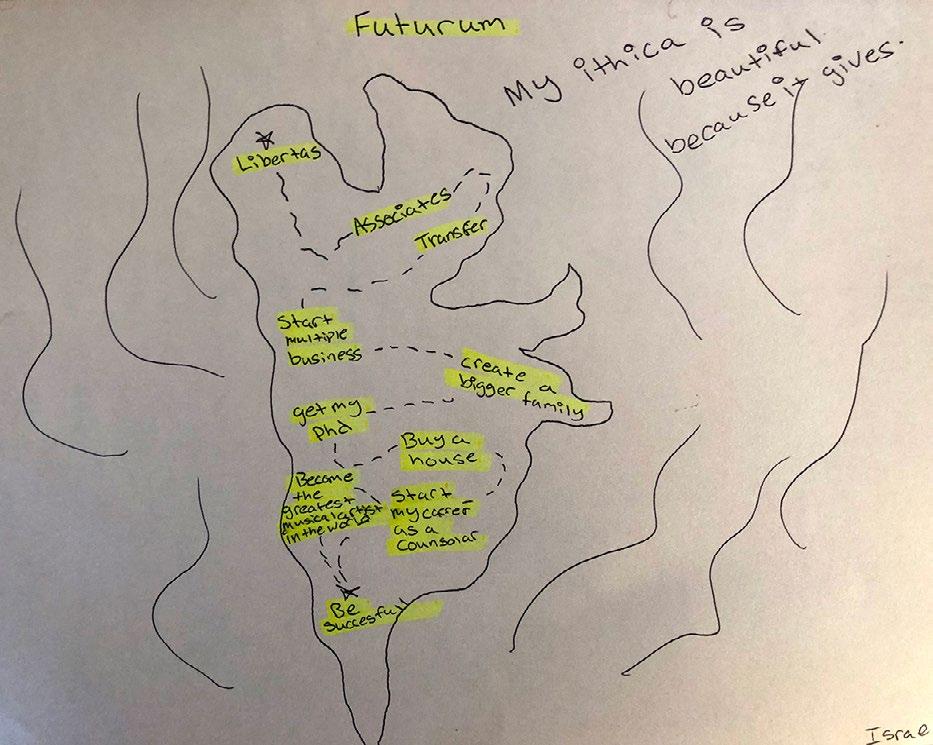 Futurum
My ithica is
beautiful
because it gives.
Libertas
Associates
Transfer
Start
multiple
business
create a
bigger family
get my
phd
Buy a
house
Become
the
greatest
musical artist
in the world
Start
my carrer
as a
Counsolar
Be
succesful
Israe